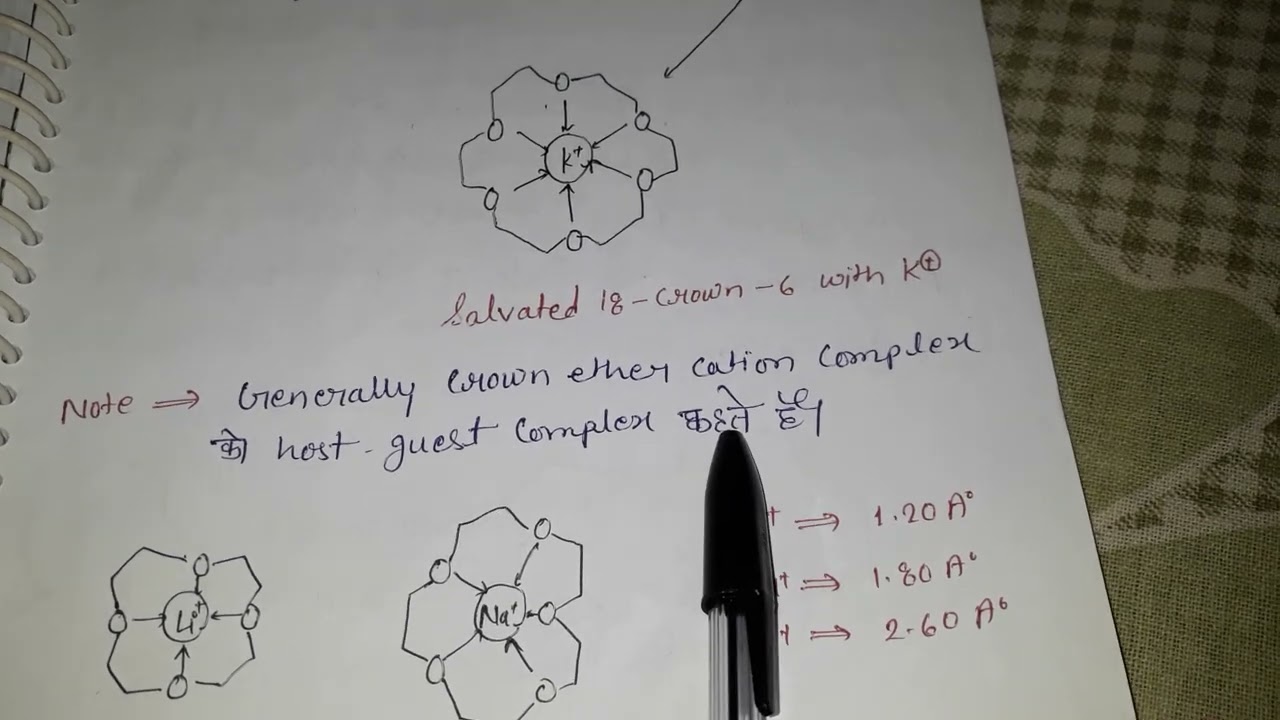 O
O
O
K+
O
O
O
Salvated 18-crown-6 with K⊕
Note ⇒ Generally crown ether cation complex
को host-guest complex कहते हैं।
O
O
O
Li+
O
O
O
O
Na+
O
O
O
+ ⇒ 1.20 A°
+ ⇒ 1.80 A°
+ ⇒ 2.60 A°